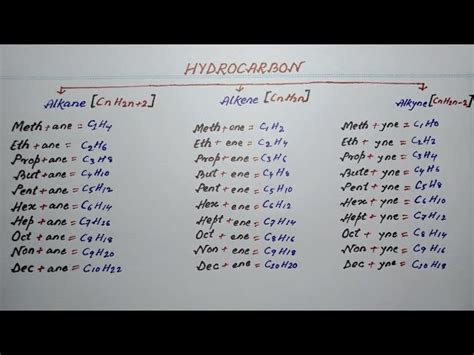 HYDROCARBON
Alkane [CnH2n+2]
Alkene [CnH2n]
Alkyne [CnH2n-2]
Meth+ane = C1H4
Eth + ane = C2H6
Prop+ane = C3H8
But + ane = C4H10
Pent+ane = C5H12
Hex+ane = C6H14
Hep+ane = C7H16
Oct + ane = C8H18
Non+ane = C9H20
Dec+ane = C10H22
Meth+ene = C1H2
Eth + ene = C2H4
Prop+ene = C3H6
But + ene = C4H8
Pent+ene = C5H10
Hex + ene = C6H12
Hept+ene = C7H14
Oct + ene = C8H16
Non + ene = C9H18
Dec + ene = C10H20
Meth + yne = C1H0
Eth + yne = C2H2
Prop + yne = C3H4
Bute + yne = C4H6
Pent + yne = C5H8
Hex + yne = C6H10
Hept + yne = C7H12
Oct + yne = C8H14
Non + yne = C9H16
Dec + yne = C10H18